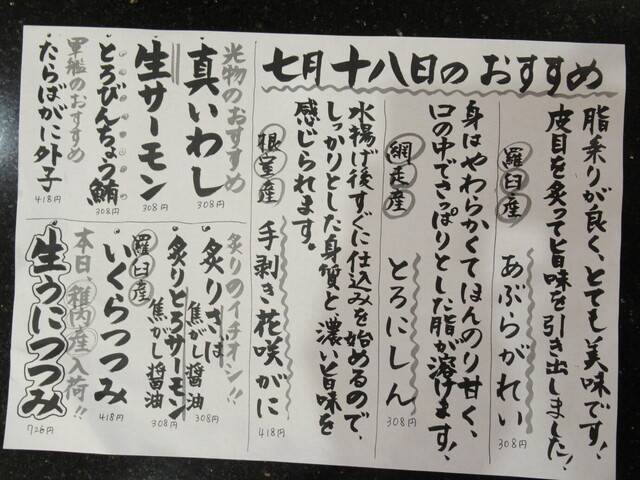 七月十八日のおすすめ
脂乗りが良く、とても美味です!
皮目を炙って旨味を引き出しました!
羅臼産 あぶらがれい 308円
身はやわらかくてほんのり甘く、
口の中でさっぱりとした脂が溶けます!
網走産 とろにしん 308円
水揚げ後すぐに仕込みを始めるので、
しっかりとした身質と、濃い旨味を
感じられます。
根室産 手剥き花咲がに 418円
光物のおすすめ
真いわし 308円
生サーモン 308円
とろびんちょう鮪 308円
軍艦のおすすめ
たらばがに外子 418円
炙りのイチオシ!!
炙りさば 焦がし醤油 308円
炙りとろサーモン 焦がし醤油 308円
羅臼産 いくらつつみ 418円
本日、稚内産入荷!!
生うにつつみ 726円